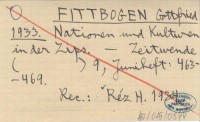 FITTBOGEN Gottfried
1933. Nationen und Kulturen
in der Zips. — Zeitwende
( ) 9, Juniheft: 463-
-469.
Rec.: Réz H. 1934